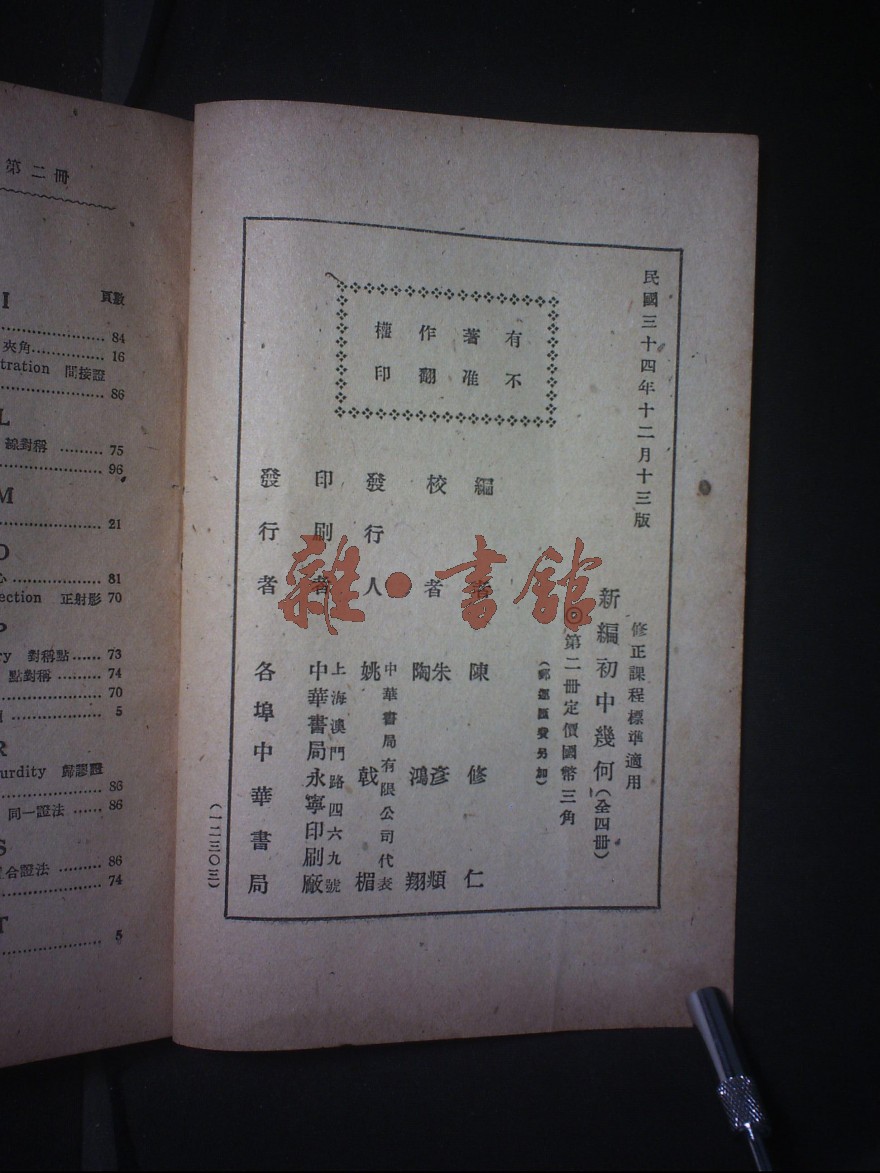 民國三十四年十二月十三版
修正課程標準適用
新編初中幾何(全四冊)
◎第二冊定價國幣三角
(郵運匯費另加)
有不
著准
作翻
權印
編者 陳修仁
校者 朱彥頫
陶鴻翔
發行人 中華書局有限公司代表
姚戟楣
印刷者 上海澳門路四六九號
中華書局永寧印刷廠
發行者 各埠中華書局
(一二三〇三)
雜·書館
第二冊
頁數
I
84
夾角 16
tration 間接證
86
L
線對稱 75
96
M
21
O
心 81
ection 正射影 70
P
ry 對稱點 73
點對稱 74
70
5
R
urdity 歸謬證
86
同一證法 86
S
合證法 86
74
T
5